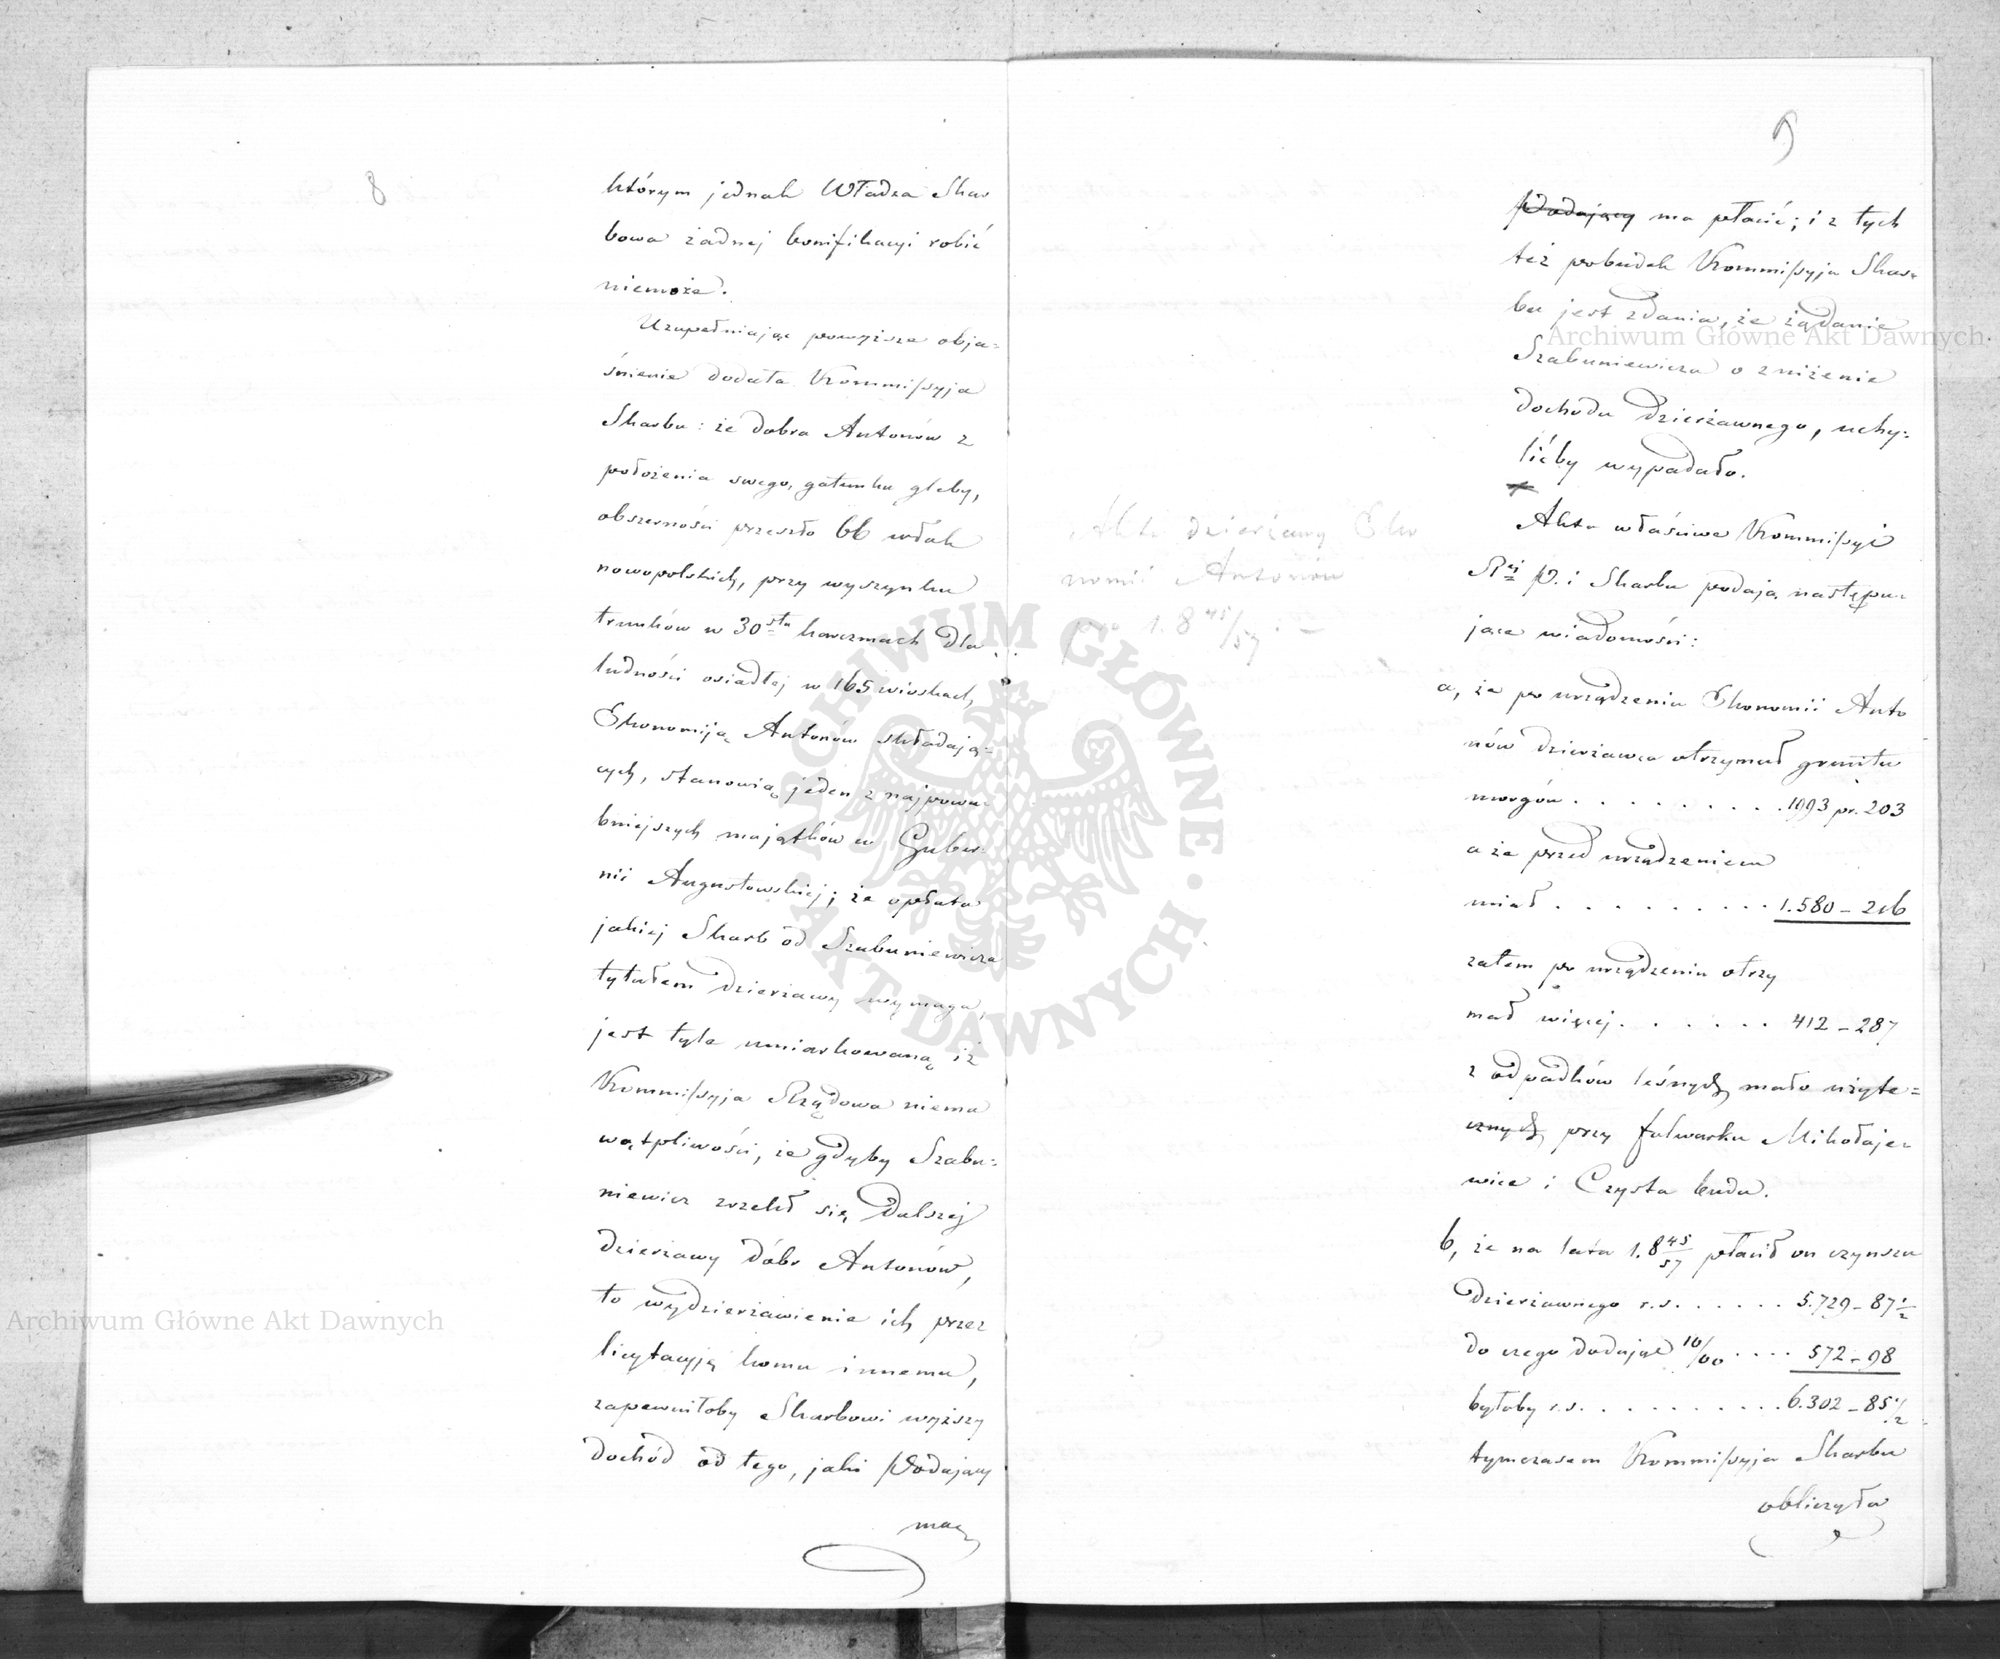 8
którym jednak Władza Skar
bowa żadnej bonifikacyi robić
niemoże.
Uzupełniając powyższe obja=
śnienie dodała Kommissyja
Skarbu: że dobra Antonów z
położenia swego, gatunku gleby,
obszerności przeszło 66 włók
nowopolskich, przy wyszynku
trunków w 30stu karczmach dla
ludności osiadłej w 165 wioskach,
Ekonomiją Antonów składają=
cych, stanowią jeden z najpowa
bniejszych majątków w Guber=
nii Augustowskiej; że opłata
jakiej Skarb od Szabuniewicza
tytułem dzierżawy wymaga,
jest tyle umiarkowaną iż
Kommissyja Rządowa niema
wątpliwości, że gdyby Szabu=
niewicz zrzekł się dalszej
dzierżawy dóbr Antonów,
to wydzierżawienie ich przez
licytacyją komu innemu,
zapewniłoby Skarbowi wyższy
dochód od tego, jaki Podający
ma
9
Podający ma płacić; i z tych
też pobudek Kommissyja Skar=
bu jest zdania, że żądanie
Szabuniewicza o zniżenie
dochodu dzierżawnego, uchy=
lićby wypadało.
Akta dzierżawy Eko
nomii Antonów
pro 1.8 45/57
Akta właściwe Kommissyi
Rej P. i Skarbu podają następu=
jące wiadomości:
a, że po urządzeniu Ekonomii Anto
nów dzierżawca otrzymał gruntu
morgów . . . . . . . . . 1993 pr. 203
a że przed urządzeniem
miał . . . . . . . . . 1.580 – 216
zatem po urządzeniu otrzy
mał więcej . . . . . . 412 – 287
z odpadków leśnych mało użyte=
cznych, przy folwarku Mikołaje
wice i Czysta buda.
b, że na lata 1.8 45/57 płacił on czynszu
dzierżawnego r.s. . . . . . 5.729 – 87 1/2
do czego dodając 10/00 . . . . 572 – 98
byłoby r.s. . . . . . . . . . . 6.302 – 85 1/2
tymczasem Kommissyja Skarbu
obliczyła
Archiwum Główne Akt Dawnych
Archiwum Główne Akt Dawnych
ARCHIWUM GŁÓWNE AKT DAWNYCH